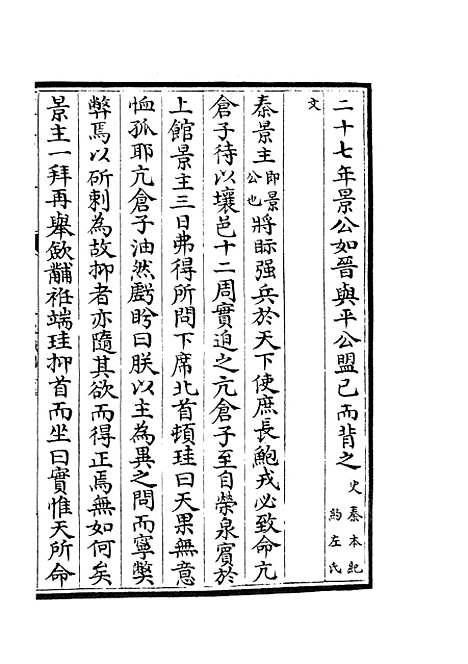 二十七年景公如晉與平公盟已而背之史秦本紀約左氏
文
秦景主即景公也將眎强兵於天下使庶長鮑戎必致命亢
倉子待以壤邑十二周實迫之亢倉子至自榮泉賓於
上館景主三日弗得所問下席北首頓珪曰天果無意
恤孤耶亢倉子油然虧盻曰朕以主為異之問而寧弊
弊焉以斫剌為故抑者亦隨其欲而得正焉無如何矣
景主一拜再舉斂黼袵端珪抑首而坐曰實惟天所命